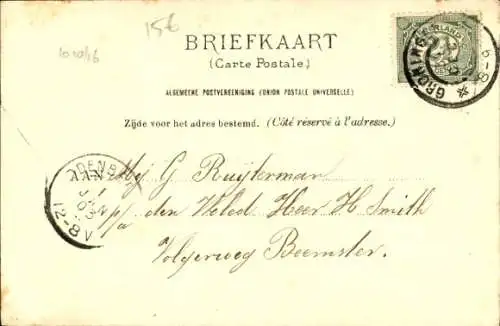 15c
BRIEFKAART
(Carte Postale.)
ALGEMEENE POSTVEREENIGING (UNION POSTALE UNIVERSELLE)
Zijde voor het adres bestemd. (Côté réservé à l'adresse.)
GRONING
8-5
NEDERLAND
DENB
8-12V
Mej G Ruijterman
p/a den Weled Heer H Smith
Volgerweg Beemster.